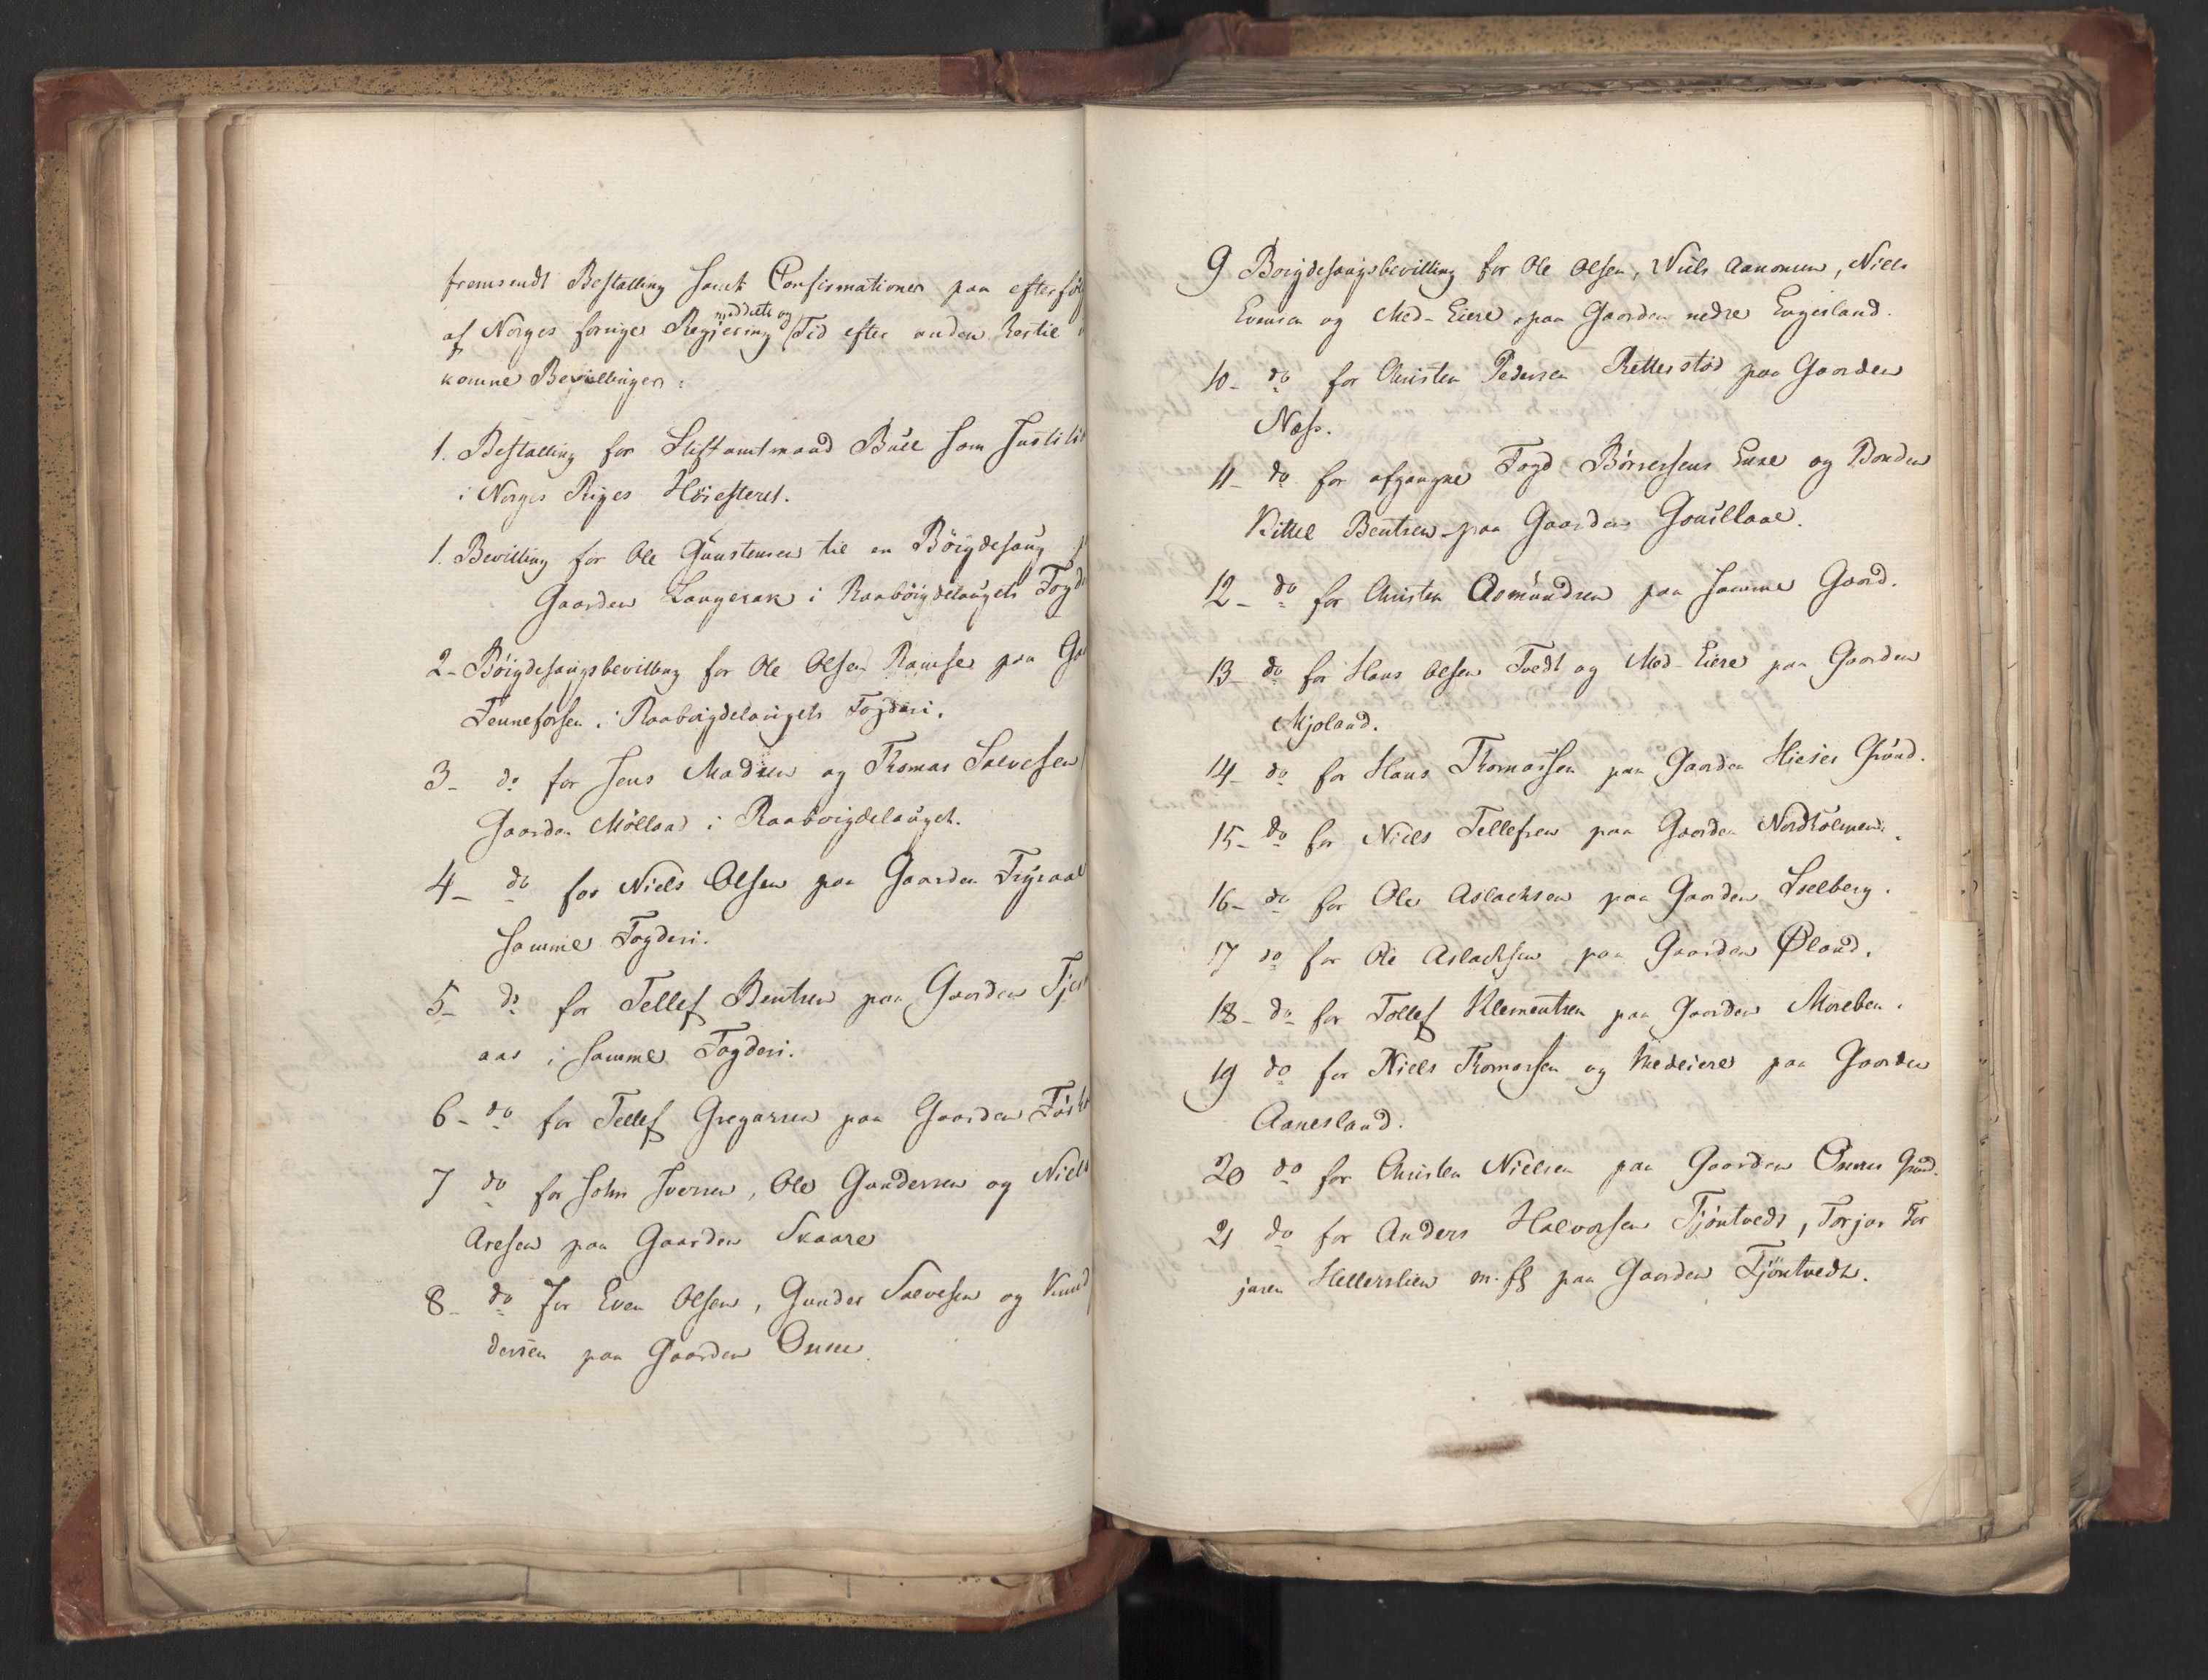 fremsendt Bestalling samt Confirmationer paa efterføl
af Norges forrige Regjering meddeelte og Tid efter anden hertil
komne Bevillinger:
1. Bestalling for Stiftamtmand Bull som Justiti
i Norges Riges Höiesteret.
1. Bevilling for Ole Gunstensen til en Böigdesaug
Gaarden Langerak i Raaböigdelaugets Fogd
2- Böigdesaugsbevilling for Ole Olsen Ramse paa Ga
Fennefossen i Raaböigdelaugets Fogderi.
3- do for Jens Madsen og Thomas Salvesen
Gaarden Möllaas i Raaböigdelauget.
4- do for Niels Olsen paa Gaarden Frÿraas
samme Fogderi.
5- do for Tellef Bentsen paa Gaarden Tje
aas i samme Fogderi.
6- do for Tellef Gregarsen paa Gaarden
7 do for John Iversen, Ole Gundersen og Niels
Aresen paa Gaarden Skaare
8- do For Even Olsen, Gunder Salvesen og Knud
dersen paa Gaarden Osen
9 Boigdesaugsbevilling for Ole Olsen, Niels Aanonsen, Niels
Evensen og Med-Eiere paa Gaarden nedre Engesland.
10- do for Christen Pedersen Retterstöd paa Gaarden
Næss.
11- do for afgangne Fogd Börresens Enke og Bonden
Kittel Bentsen paa Gaarden
12- do for Christen Aomundsen paa samme Gaard.
13- do for Hans Olsen Tvedt og Med-Eiere paa Gaarden
Mjoland.
14- do for Hans Thomassen paa Gaarden Hieser Grund.
15- do for Niels Tellefsen paa Gaarden Nordholmen.
16- do for Ole Aslachsen paa Gaarden Iselberg.
17 do for Ole Aslachsen paa Gaarden Øland.
18- do for Tollef Klementsen paa Gaarden Moreben.
19 do for Niels Thomassen og Medeiere paa Gaarden
Aanesland.
20 do for Christen Nielsen paa Gaarden Osens Grund.
21 do for Anders Halvorsen Tjöntvedt, Torjer Tor
jusen Hellerslien m. fl paa Gaarden Tjöntvedt.